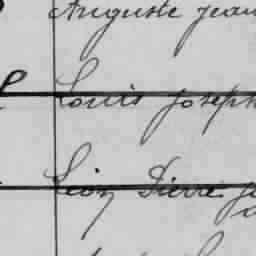 Auguste Jean
Louis Joseph
Léon Pierre